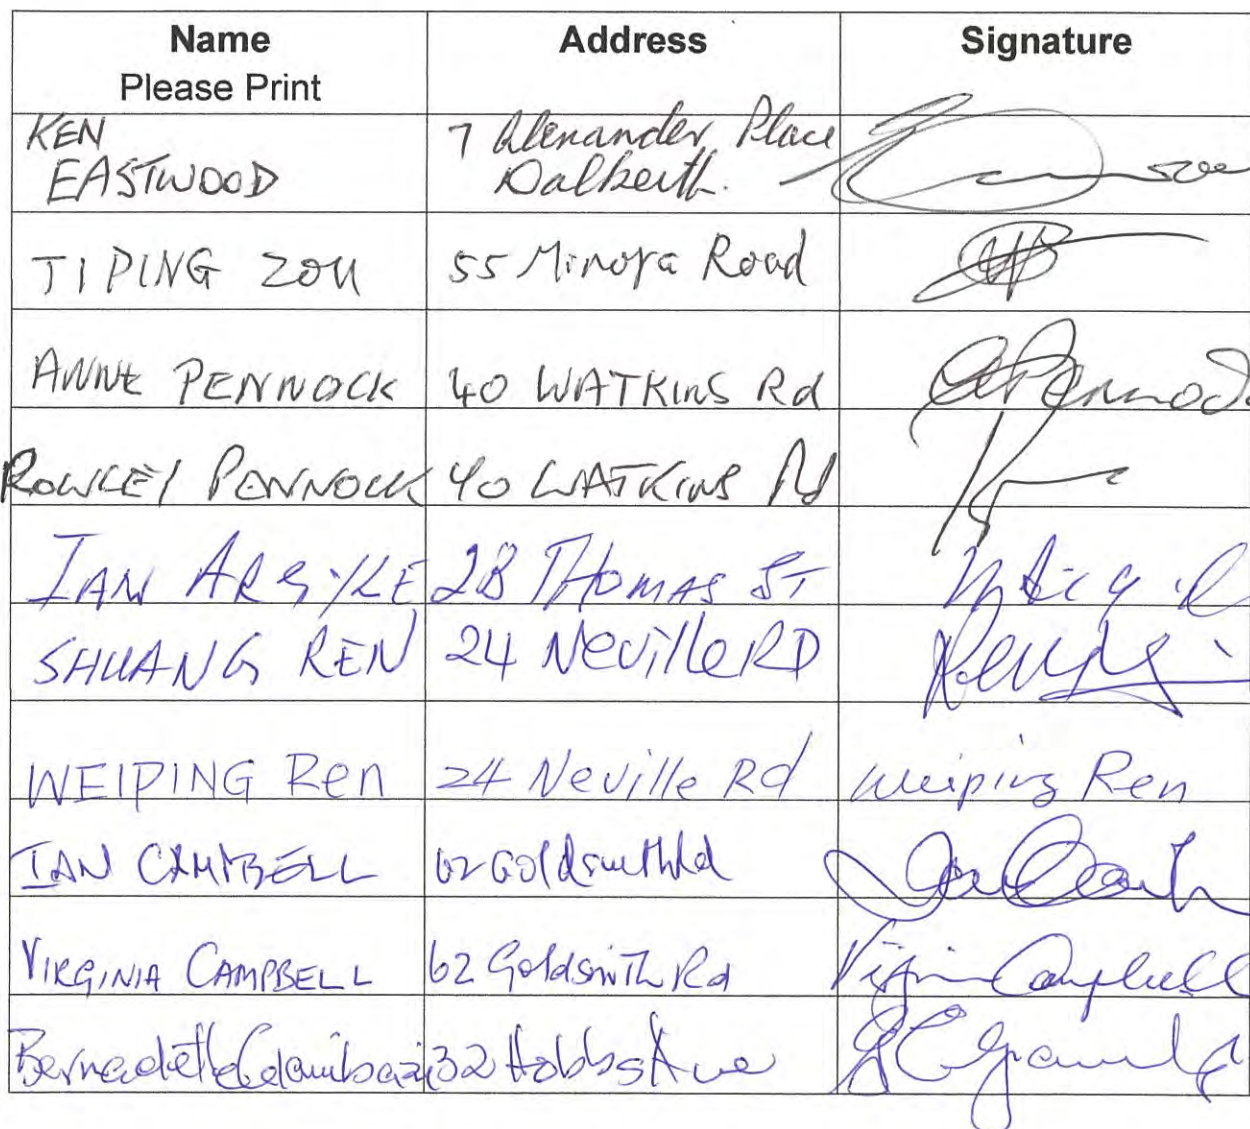 Name Address Signature
Please Print
KEN 7 Alexander Place
EASTWOOD Dalkeith.
TIPING ZOU 55 Minora Road
ANNE PENNOCK 40 WATKINS Rd APennock
ROWLEY PENNOCK 40 WATKINS Rd
IAN ARGYLE 28 THOMAS ST
SHUANG REN 24 Neville RD
WEIPING Ren 24 Neville Rd Weiping Ren
IAN CAMPBELL 62 Goldsmith Rd
VIRGINIA CAMPBELL 62 Goldsmith Rd Virginia Campbell
Bernadette 32 Hobbs Ave